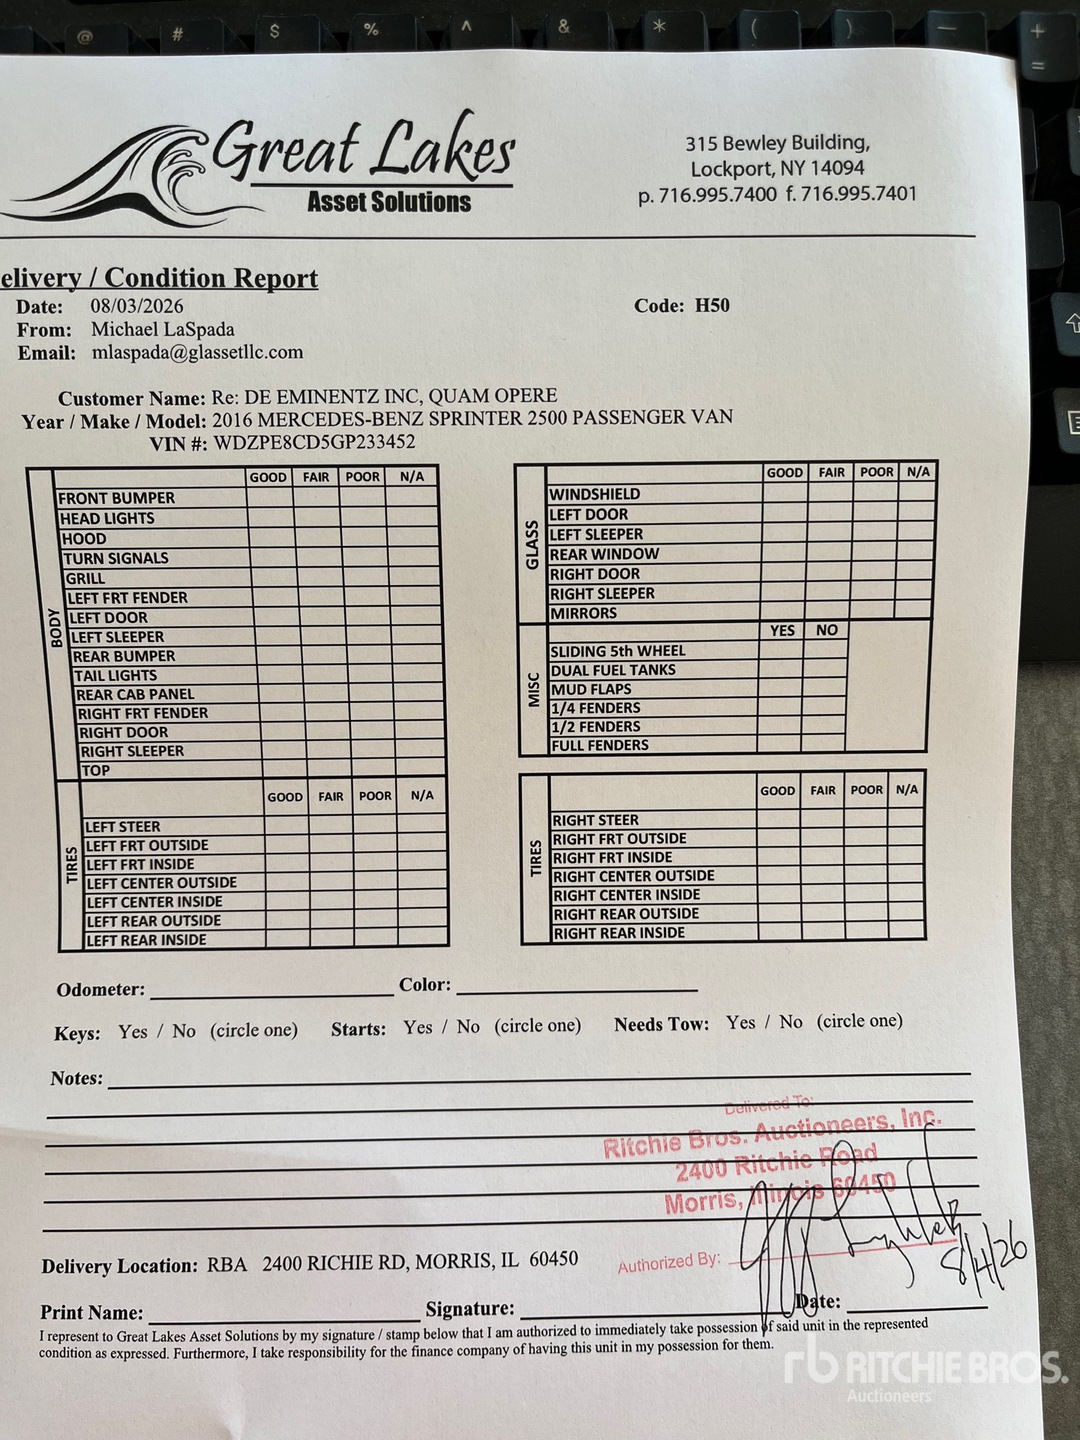 @ # $ % ^ & * ( ) — +
=
Great Lakes
Asset Solutions
315 Bewley Building,
Lockport, NY 14094
p. 716.995.7400 f. 716.995.7401
elivery / Condition Report
Date: 08/03/2026
Code: H50
From: Michael LaSpada
Email: mlaspada@glassetllc.com
Customer Name: Re: DE EMINENTZ INC, QUAM OPERE
Year / Make / Model: 2016 MERCEDES-BENZ SPRINTER 2500 PASSENGER VAN
VIN #: WDZPE8CD5GP233452
BODY
GOOD FAIR POOR N/A
FRONT BUMPER
HEAD LIGHTS
HOOD
TURN SIGNALS
GRILL
LEFT FRT FENDER
LEFT DOOR
LEFT SLEEPER
REAR BUMPER
TAIL LIGHTS
REAR CAB PANEL
RIGHT FRT FENDER
RIGHT DOOR
RIGHT SLEEPER
TOP
TIRES
GOOD FAIR POOR N/A
LEFT STEER
LEFT FRT OUTSIDE
LEFT FRT INSIDE
LEFT CENTER OUTSIDE
LEFT CENTER INSIDE
LEFT REAR OUTSIDE
LEFT REAR INSIDE
GLASS
GOOD FAIR POOR N/A
WINDSHIELD
LEFT DOOR
LEFT SLEEPER
REAR WINDOW
RIGHT DOOR
RIGHT SLEEPER
MIRRORS
MISC
YES NO
SLIDING 5th WHEEL
DUAL FUEL TANKS
MUD FLAPS
1/4 FENDERS
1/2 FENDERS
FULL FENDERS
TIRES
GOOD FAIR POOR N/A
RIGHT STEER
RIGHT FRT OUTSIDE
RIGHT FRT INSIDE
RIGHT CENTER OUTSIDE
RIGHT CENTER INSIDE
RIGHT REAR OUTSIDE
RIGHT REAR INSIDE
Odometer: Color:
Keys: Yes / No (circle one) Starts: Yes / No (circle one) Needs Tow: Yes / No (circle one)
Notes:
Delivered To:
Ritchie Bros. Auctioneers, Inc.
2400 Ritchie Road
Morris, Illinois 60450
Authorized By:
8/4/26
Delivery Location: RBA 2400 RICHIE RD, MORRIS, IL 60450
Print Name: Signature: Date:
I represent to Great Lakes Asset Solutions by my signature / stamp below that I am authorized to immediately take possession of said unit in the represented
condition as expressed. Furthermore, I take responsibility for the finance company of having this unit in my possession for them.
rb RITCHIE BROS.
Auctioneers